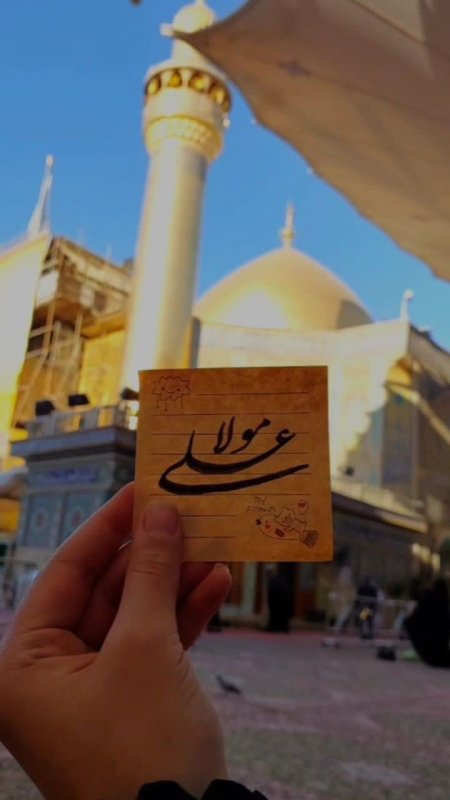 مولا
علی